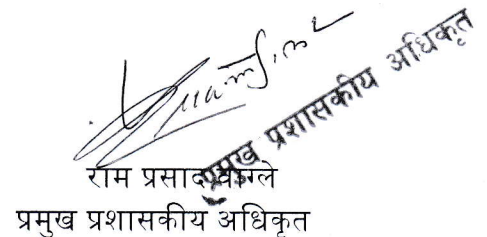 प्रमुख प्रशासकीय अधिकृत
राम प्रसाद वाग्ले
प्रमुख प्रशासकीय अधिकृत